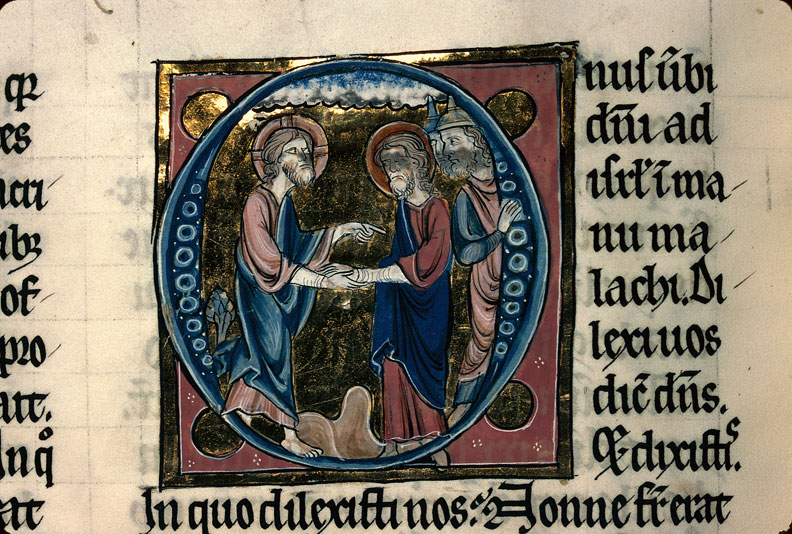 es
ibꝫ
pro
In qͦ
O
nuſ ũbi
dñi ad
iſrł ĩ ma
nu ma
lachi. Di
lexi uos
dic̃ dñs.
& dixiſtiˢ.
In quo dilexiſti nos. Nonne fr̃ erat